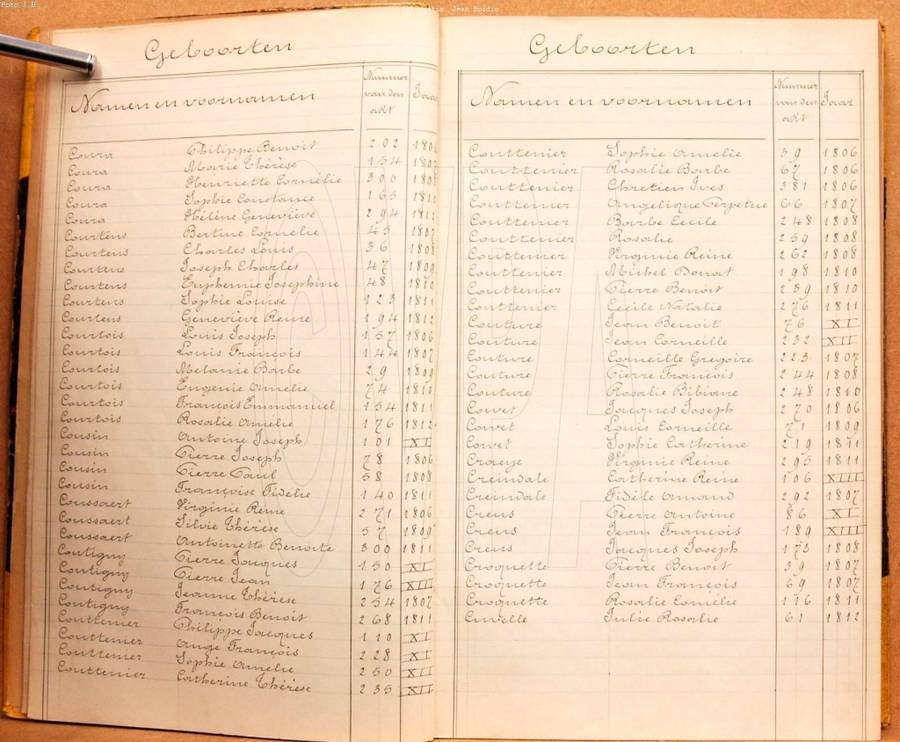 Geboorten
Namen en voornamen Nummer van den akt Jaar
Coura Philippe Benoit 202 180
Coura Marie Thérèse 154 180
Coura Henriette Cornélie 300 180
Coura Sophie Constance 165 1810
Coura Hélène Geneviève 294 1812
Courtens Bertine Cornelie 45 1807
Courtens Charles Louis 36 1808
Courtens Joseph Charles 47 1809
Courtens Euphemie Josephine 48 1810
Courtens Sophie Louise 123 1811
Courtens Geneviève Reine 194 1812
Courtois Louis Joseph 157 1806
Courtois Louis François 144 1807
Courtois Melanie Barbe 29 1809
Courtois Eugenie Amelie 74 1810
Courtois François Emmanuel 154 1811
Courtois Rosalie Amélie 176 1812
Cousin Antoine Joseph 101 XI
Cousin Pierre Joseph 78 1806
Cousin Pierre Paul 58 1808
Cousin Françoise Fidélie 140 1811
Coussaert Virginie Reine 271 1806
Coussaert Silvie Thérèse 57 1809
Coussaert Antoinette Benoite 300 1811
Coutigny Pierre Jacques 150 XI
Coutigny Pierre Jean 176 XIII
Coutigny Jeanne Thérèse 254 1807
Coutigny François Benoit 268 1811
Couttenier Philippe Jacques 110 XI
Couttenier Ange François 228 XI
Couttenier Sophie Amelie 250 XII
Couttenier Catherine Thérèse 235 XII
Geboorten
Namen en voornamen Nummer van den akt Jaar
Couttenier Sophie Amelie 39 1806
Couttenier Rosalie Barbe 67 1806
Couttenier Chretien Ives 381 1806
Couttenier Angelique Perpetue 66 1807
Couttenier Barbe Cecile 248 1808
Couttenier Rosalie 259 1808
Couttenier Virginie Reine 262 1808
Couttenier Michel Donat 198 1810
Couttenier Pierre Benoit 239 1810
Couttenier Cecile Natalie 276 1811
Couture Jean Benoit 76 XI
Couture Jean Corneille 232 XII
Couture Corneille Gregoire 223 1807
Couture Pierre François 244 1808
Couture Rosalie Bibiane 248 1810
Couvet Jacques Joseph 270 1806
Couvet Louis Corneille 71 1809
Couvet Sophie Catherine 219 1811
Craeye Virginie Reine 295 1811
Creindale Catherine Reine 106 XIII
Creindale Fidèle Amand 292 1807
Creus Pierre Antoine 86 XI
Creus Jean François 189 XIII
Creus Jacques Joseph 173 1808
Croquette Pierre Benoit 39 1807
Croquette Jean François 69 1807
Croquette Rosalie Cornélie 116 1811
Cuvelle Julie Rosalie 61 1812